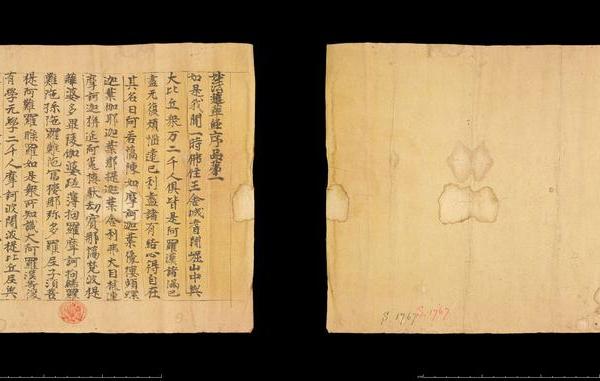 妙法蓮華經序品第一
如是我聞一時佛住王舍城耆闍崛山中與
大比丘衆万二千人俱皆是阿羅漢諸漏已
盡无復煩惱逮已利盡諸有結心得自在
其名曰阿若憍陳如摩訶迦葉優樓頻螺
迦葉伽耶迦葉那提迦葉舍利弗大目揵連
摩訶迦旃延阿㝹樓馱劫賓那憍梵波提
離婆多畢陵伽婆蹉薄拘羅摩訶拘絺羅
難陁孫陁羅難陁富樓那弥多羅尼子須菩
提阿難羅睺羅如是衆所知識大阿羅漢等復
有學无學二千人摩訶波闍波提比丘尼與
S. 1767 S.1767